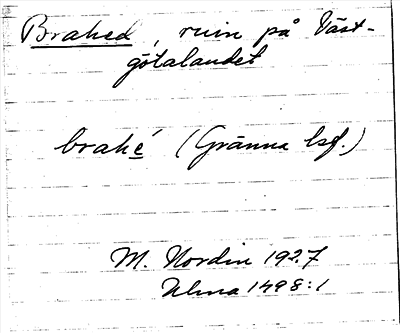 Brahed, ruin på Väst-
götalandet
brahé (Gränna lsf.)
M. Nordin 1927
Ulma 1498:1